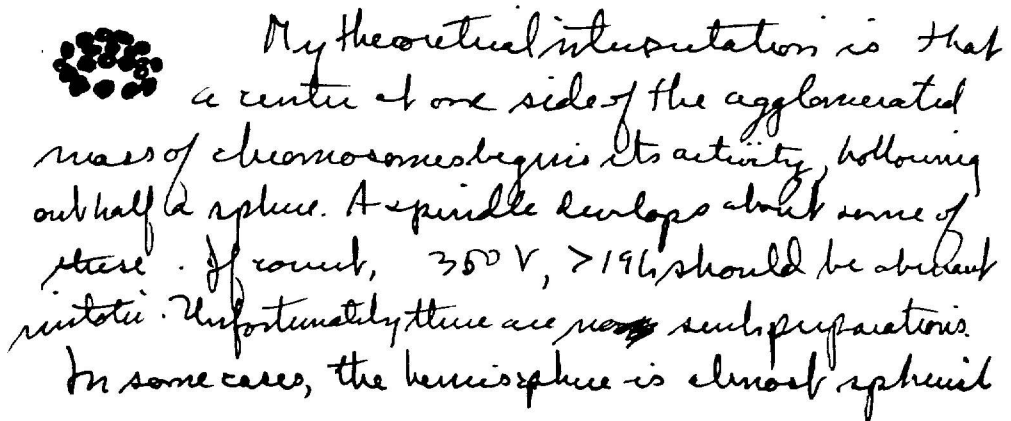 My theoretical interpretation is that
a center at one side of the agglomerated
mass of chromosomes begins its activity, hollowing
out half a sphere. A spindle develops about some of
these. If correct, 350 V, > 19h should be aberrant
mitotic. Unfortunately there are no such preparations.
In some cases, the hemisphere is almost spherical